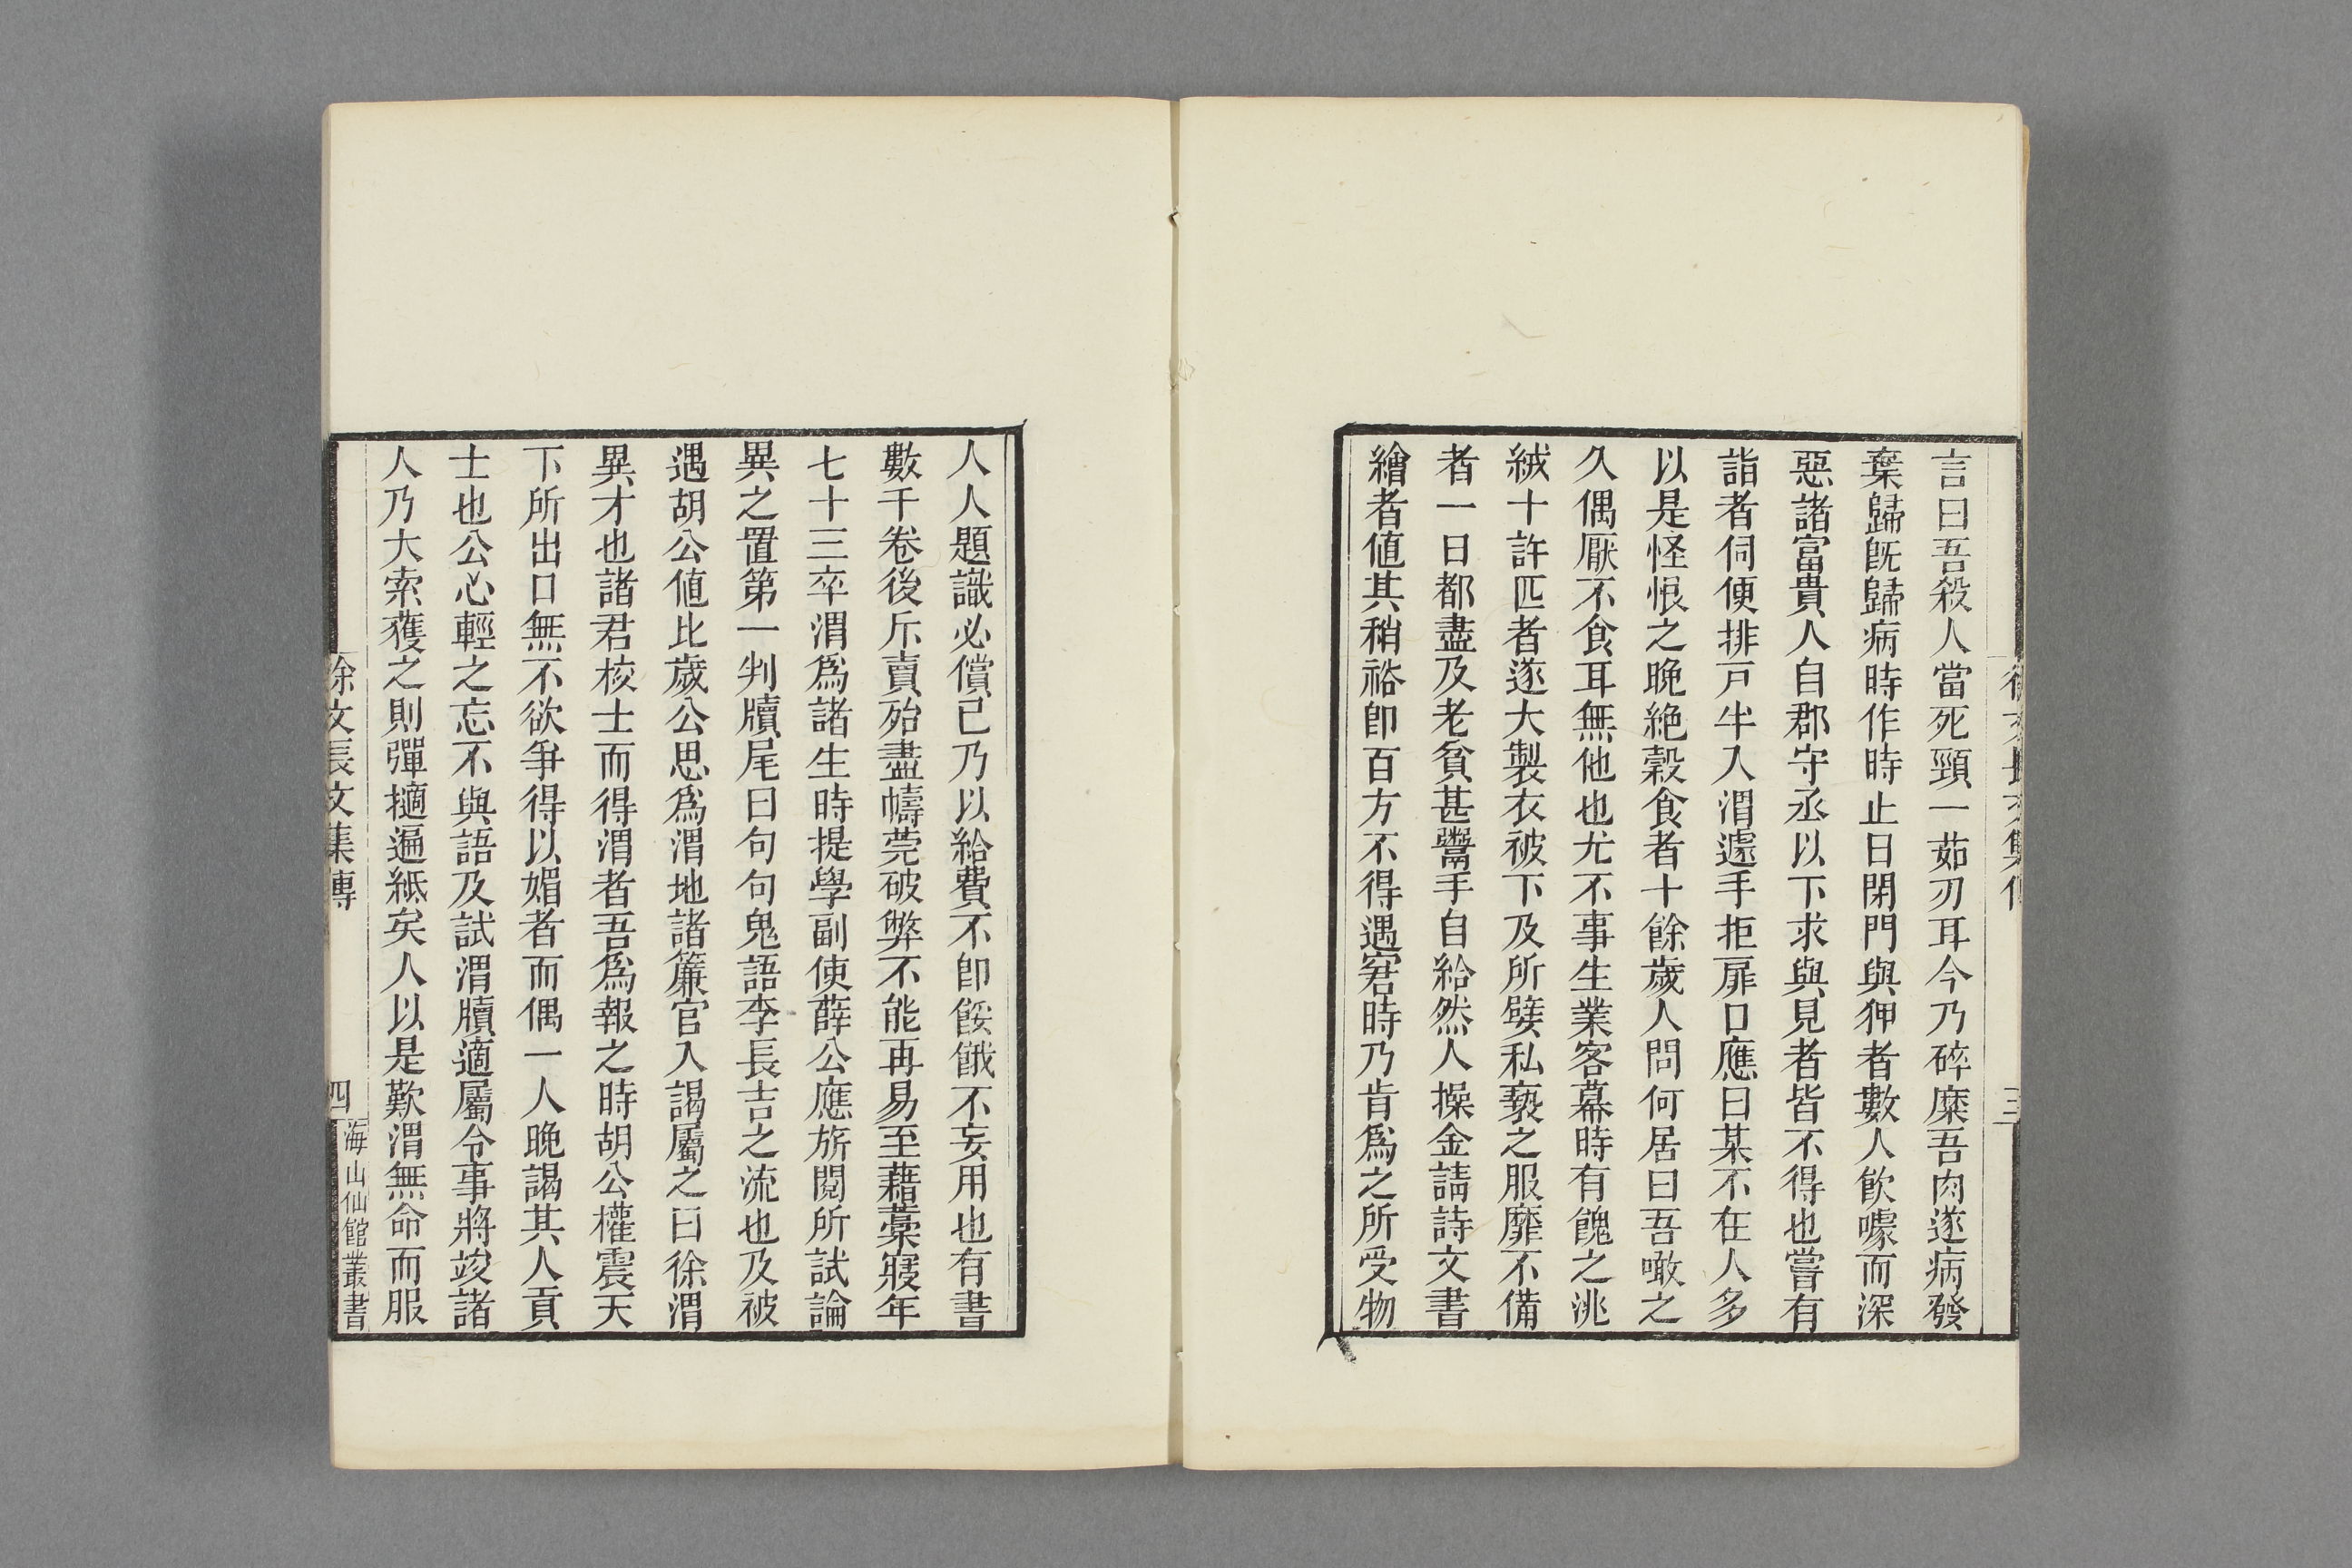 言曰吾殺人當死頸一茹刃耳今乃碎糜吾肉遂病發
棄歸旣歸病時作時止日閉門與狎者數人飮噱而深
惡諸富貴人自郡守丞以下求與見者皆不得也嘗有
詣者伺便排戸半入渭遽手拒扉口應曰某不在人多
以是怪恨之晚絶穀食者十餘歲人問何居曰吾噉之
久偶厭不食耳無他也尤不事生業客幕時有餽之洮
絨十許匹者遂大製衣被下及所嬖私褻之服靡不備
者一日都盡及老貧甚鬻手自給然人操金請詩文書
繪者値其稍裕卽百方不得遇窘時乃肯爲之所受物
人人題識必償已乃以給費不卽餒餓不妄用也有書
數千卷後斥賣殆盡幬莞破弊不能再易至藉藁寢年
七十三卒渭爲諸生時提學副使薛公應旂閱所試論
異之置第一判牘尾曰句句鬼語李長吉之流也及被
遇胡公値比歲公思爲渭地諸簾官入謁屬之曰徐渭
異才也諸君校士而得渭者吾爲報之時胡公權震天
下所出口無不欲爭得以媚者而偶一人晚謁其人貢
士也公心輕之忘不與語及試渭牘適屬令事將竣諸
人乃大索獲之則彈擿遍紙矣人以是歎渭無命而服
徐文長文集傳
四
海山仙館叢書